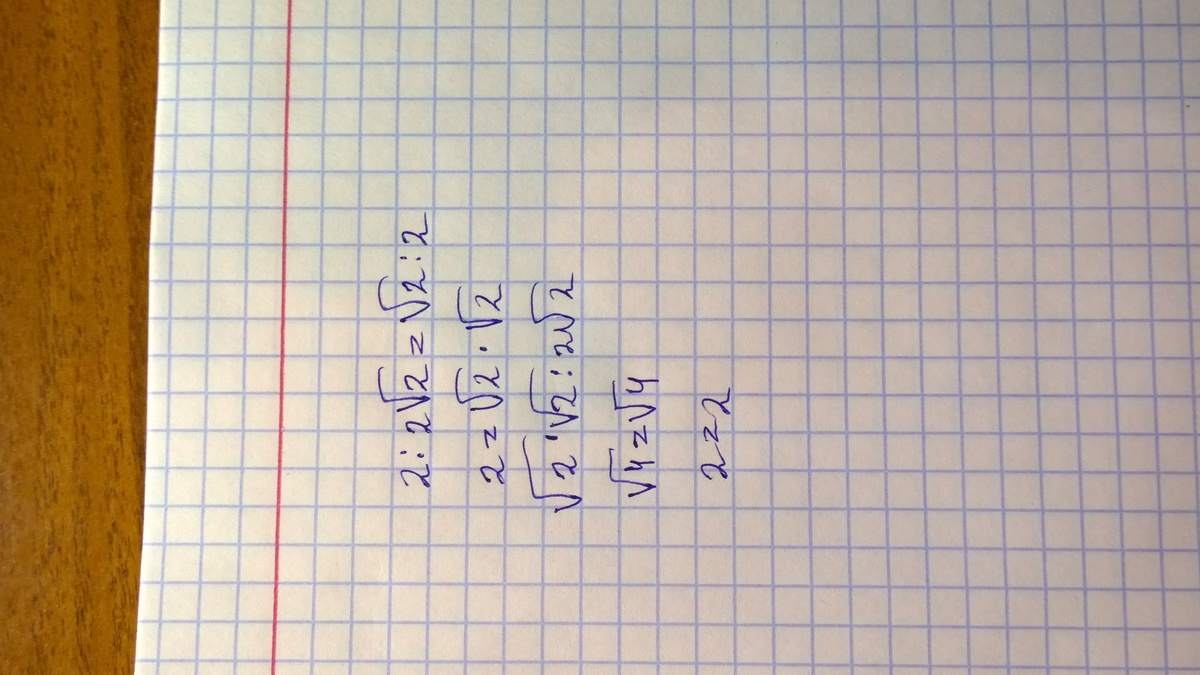 2:2√2=√2:2
2=√2·√2
√2·√2:2√2
√4=√4
2=2